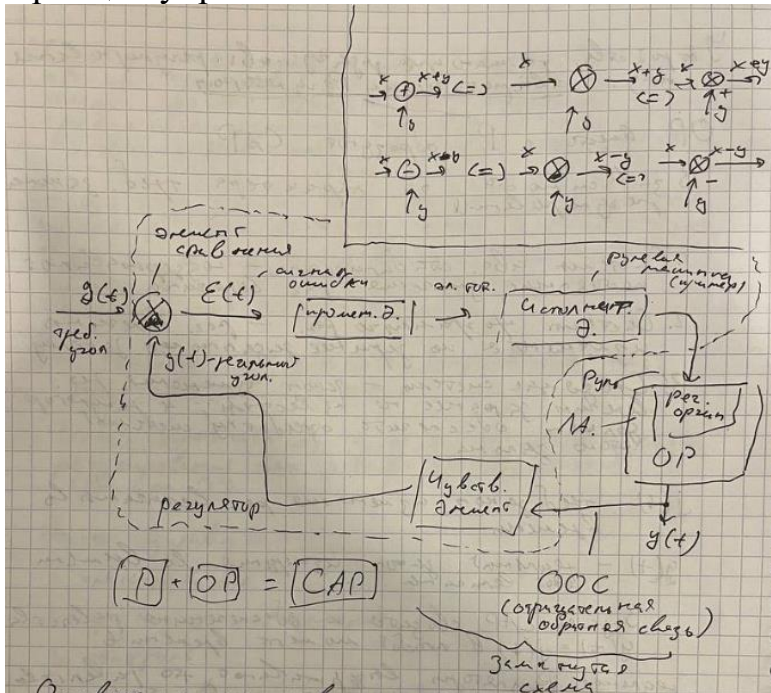 x x+y (=) x x+y (=) x x+y
y y + y
x (=) x x-y (=) x x-y
y y - y
элемент
сравнения
g(t) Ɛ(t) сигнал
ошибки
треб.
угол
промеж. э.
эл. ток.
Исполнит.
Э.
рулевая
машинка
(пример)
y(t)-реальный
угол.
Руль
рег.
орган
ОР
Чувств.
Элемент
регулятор
y(t)
Р + ОР = САР
ООС
(отрицательная
обратная связь)
Замкнутая
схема